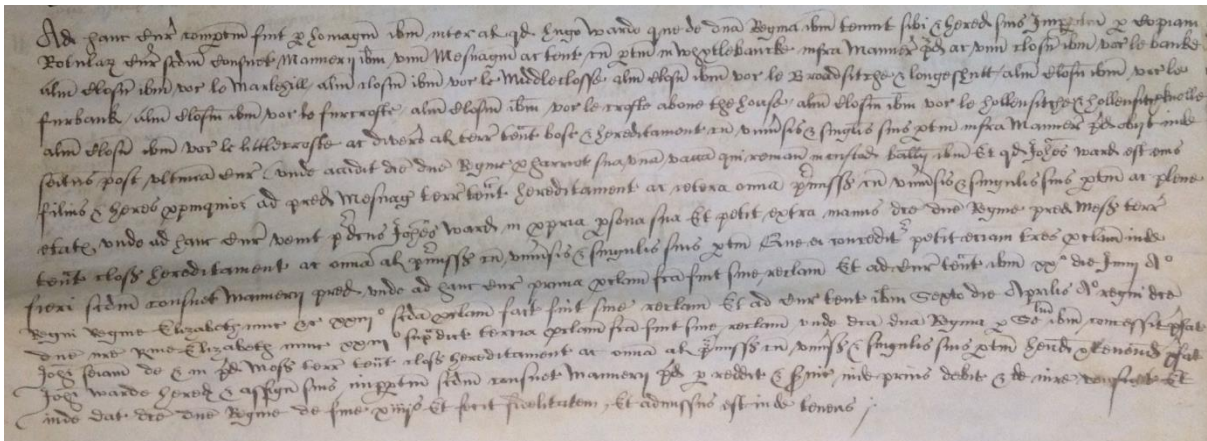 Ad hanc Cur compertm fuit p homagm ibm inter al qd hugo warde qui de dna Regina ibm tenuit sibi & hered suis Imppetm p copiam
Rotulaz Cur scdm consuet Manerij ibm vnu Mesuagm ac tent cu ptin in Whytlebancke infra Manner pd ac vnu closm ibm voc le banke
alm closm ibm voc le Marlehill alm closm ibm voc le Middleclosse alm closm ibm voc le Broadsitche & longeshutt alm closm ibm voc le
furbank alm closm ibm voc le furcrofte alm closm ibm voc le crofte above the house alm closm ibm voc le hollensitche & hollensitcheknolle
alm closm ibm voc le littlecrofte ac divers al terr tent bosc & hereditament cu vniusis & singlis suis ptin infra Manner pd obijt inde
seitus post vltimam Cur vnde accidit dce dne Regine p harriot sua vna vacca qui reman in custod ballij ibm Et qd Johes ward est eius
filius & heres ppinquior ad pred Mesuag terr tent hereditament ac cetera omia pmissis cu vniusis & singulis suis ptin ac plene
etatis vnde ad hanc Cur venit pdcus Johes warde in ppria psona sua Et petit extra manus dce dne Regine pred Mess terr
tent closs hereditament ac omia al pmissis cu vniusis & singulis suis ptin Que ei conceditr petit eciam tres pclam inde
fieri scdm consuet Mannerij pred vnde ad hanc Cur prima pclam fca fuit sine reclam Et ad Cur tent ibm xxo die Junij Ao
Regni Regine Elizabeth nunc &c xxiijo scda pclam fact fuit sine reclam Et ad Cur tent ibm Sexto die Aprilis Ao regni dce
dne nre Rne Elizabeth nunc xxiijo supdict tercia pclam fca fuit sine reclam vnde dca dna Regina p Senlum ibm concessit pfat
Johi seiam de & in pd Mess terr tent closs hereditament ac omia al pmissis cu vniusis & singulis suis ptin hend & tenend pfat
Johi warde hered & assign suis imppetm scdm consuet Mannerij pd p reddit & suic inde prius debit & de iure consuet Et
inde dat dce dne Regine de fine xiiijs Et fecit fidelitatem Et admissus est inde tenens